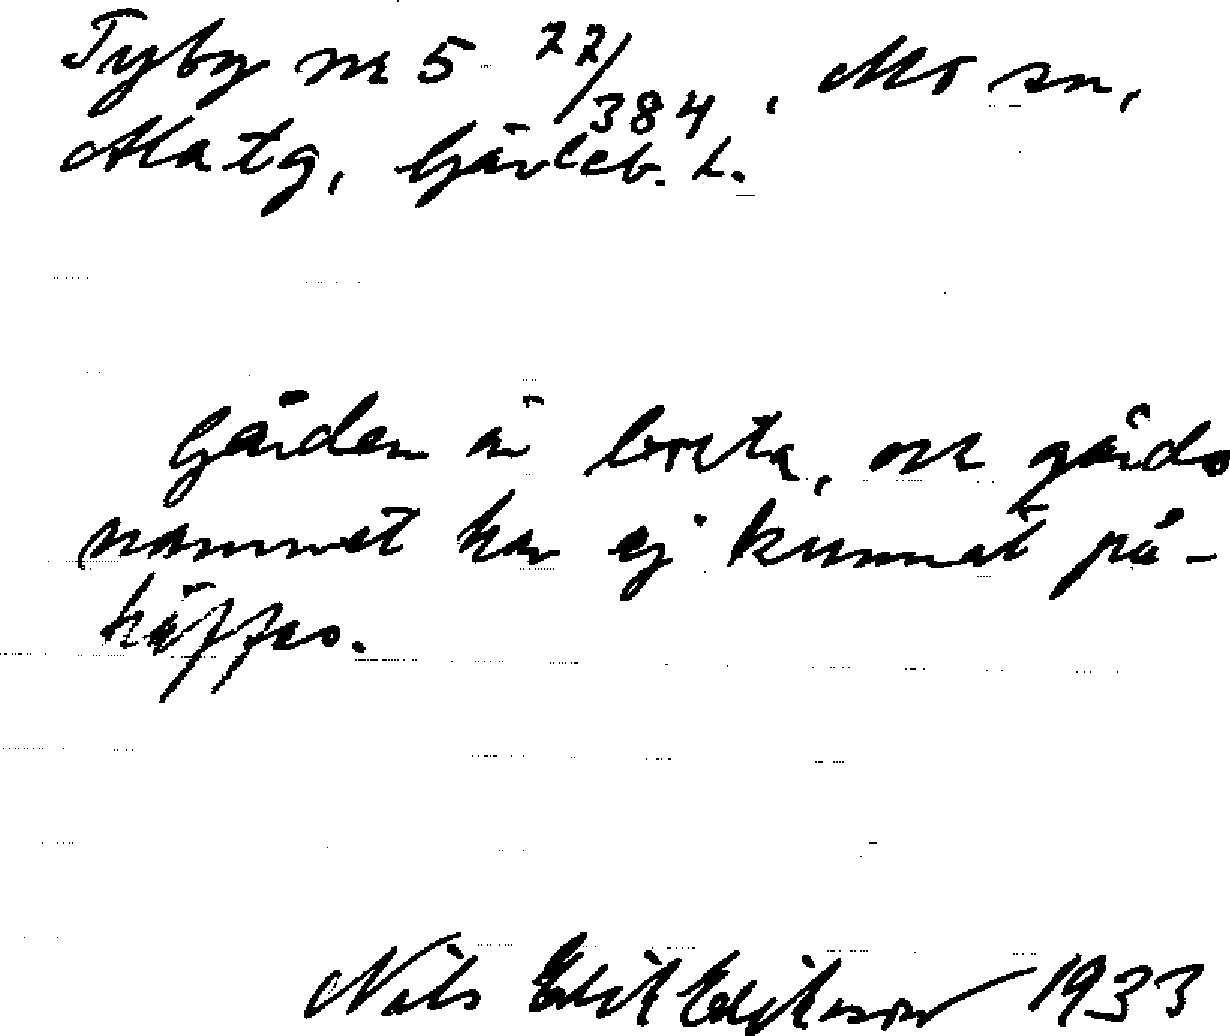 Tyby nr 5 22/384, Mo sn,
Ala tg, Gävleb. L.
Gården är borta, och gårds
namnet har ej kunnat på-
träffas.
Nils 1933